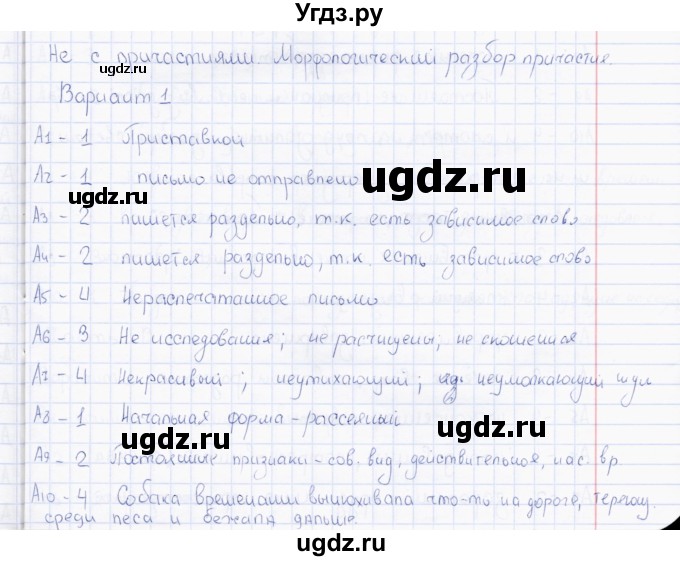 Угдз.ру
Не с причастиями. Морфологический разбор причастия.
Вариант 1
А1 - 1 Приставкой
А2 - 1 письмо не отправлено
А3 - 2 пишется раздельно, т.к. есть зависимое слово
А4 - 2 пишется раздельно, т.к. есть зависимое слово
А5 - 4 Нераспечатанное письмо
А6 - 3 Не исследования; не расчищены; не скошенная
А7 - 4 Некрасивый; неутихающий; неумолкающий шум
А8 - 1 Начальная форма - рассеянный
А9 - 2 Постоянные признаки - сов. вид, действительное, нас. вр.
А10 - 4 Собака временами вынюхивала что-то на дороге,
среди леса и бежала дальше.
ugdz.ru
ugdz.ru
ugdz.ru
ugdz.ru
ugdz.ru
ugdz.ru
ugdz.ru
ugdz.ru
ugdz.ru